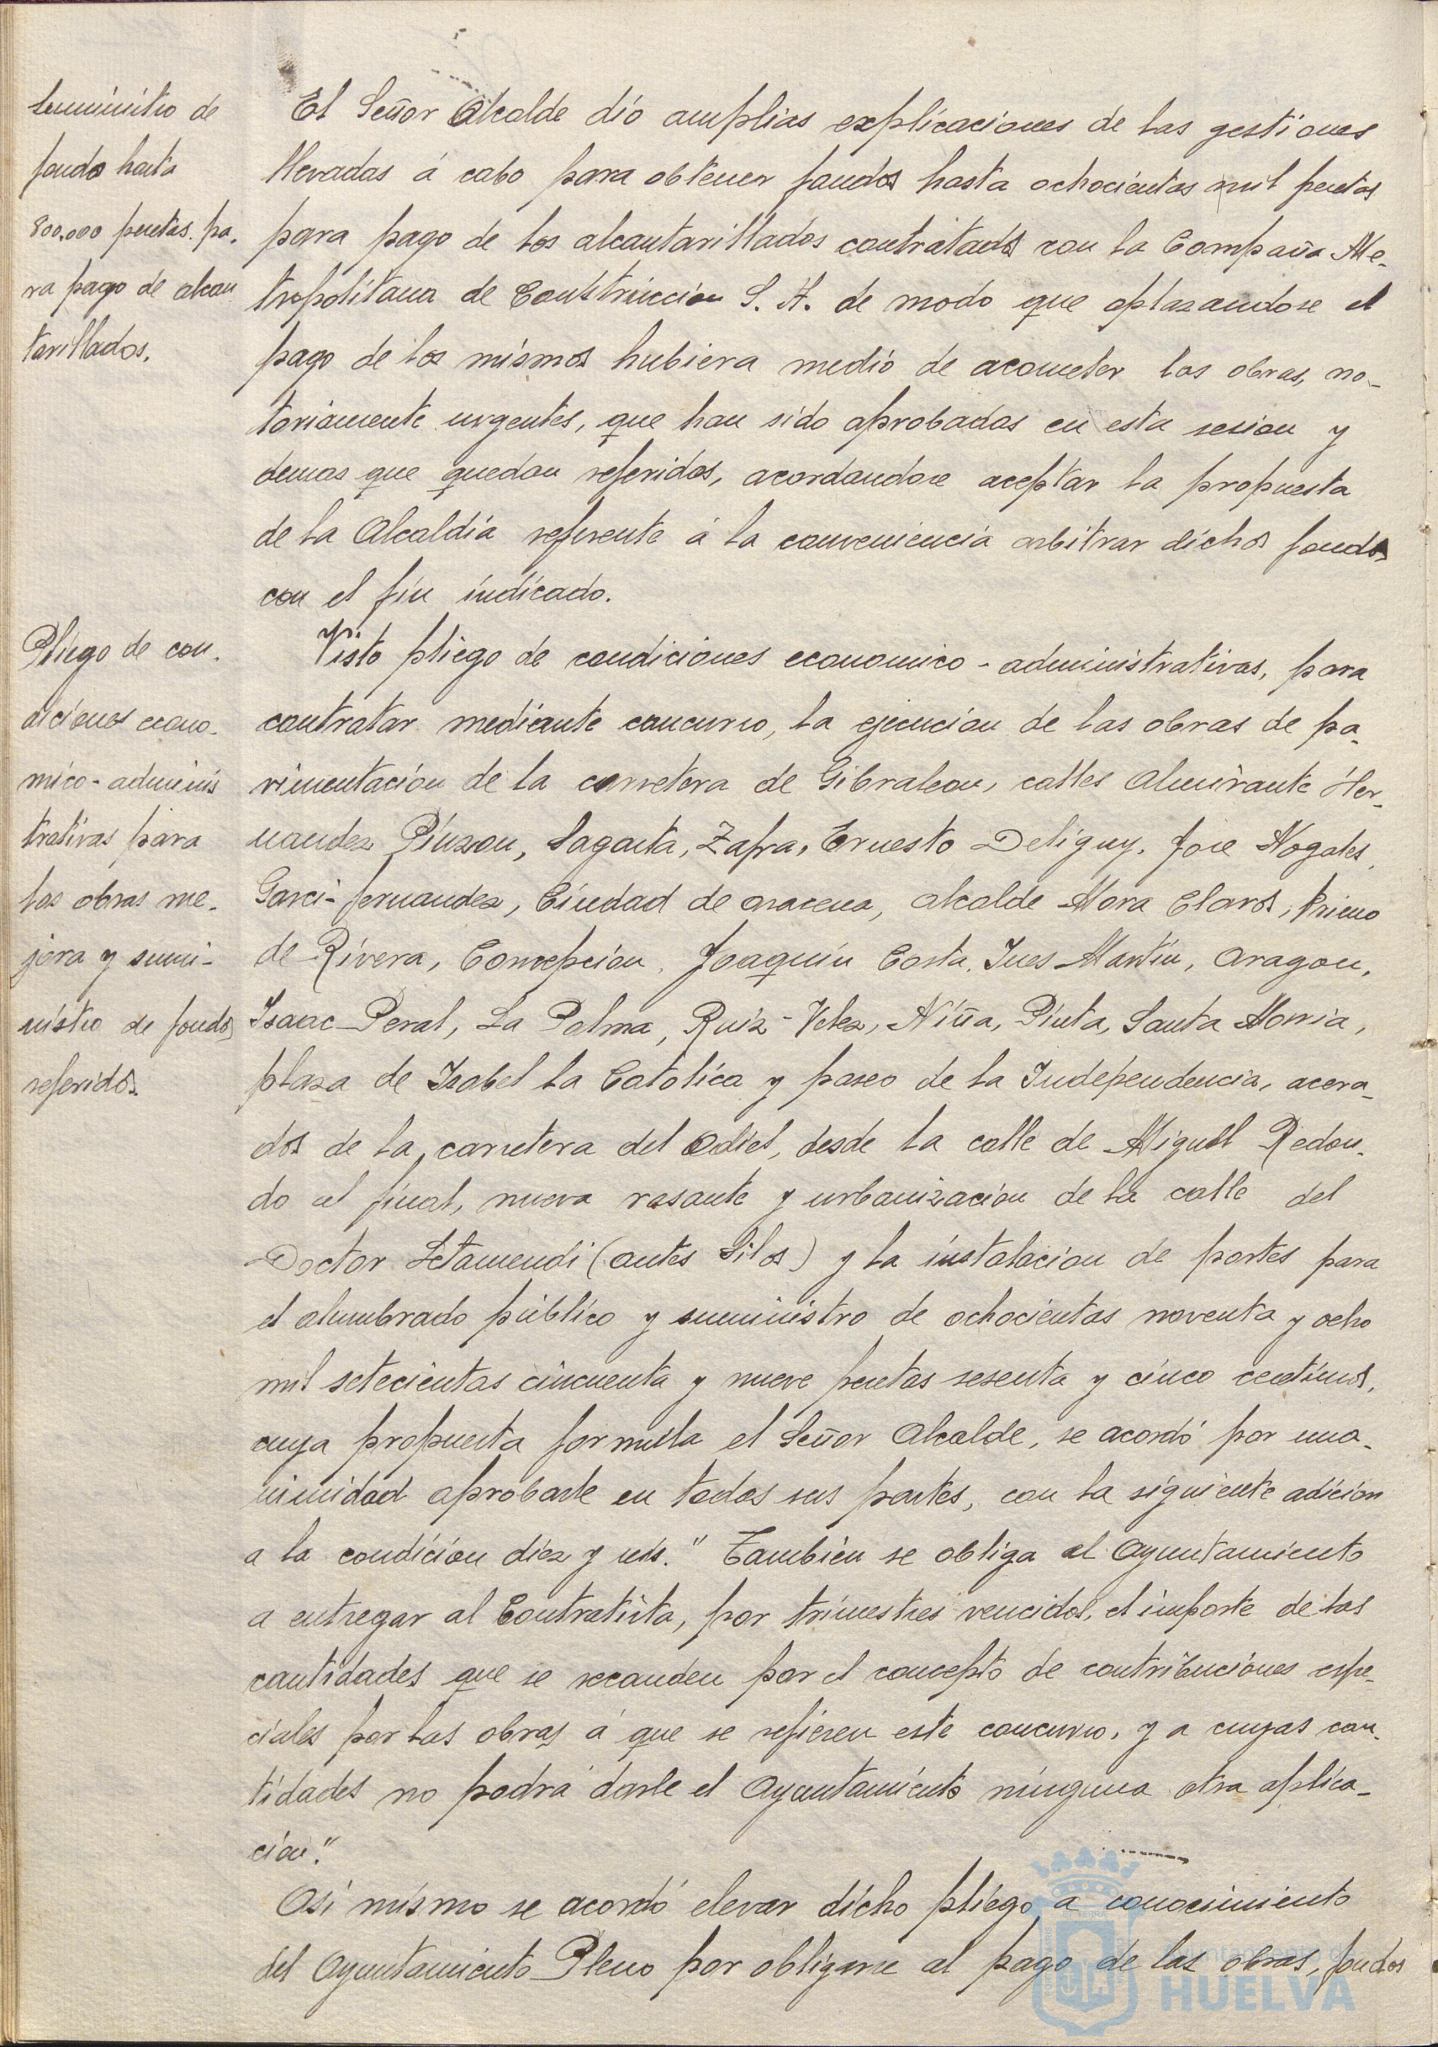 Suministro de
fondos hasta
800.000 pesetas pa-
ra pago de alcan
tarillados.
El Señor Alcalde dió amplias explicaciones de las gestiones
llevadas á cabo para obtener fondos hasta ochocientas mil pesetas
para pago de los alcantarillados contratados con la Compañia Me-
tropolitana de Construccion S. A. de modo que aplazandose el
pago de los mismos hubiera medio de acometer las obras, no-
toriamente urgentes, que han sido aprobadas en esta sesion y
demas que quedan referidas, acordandose aceptar la propuesta
de la Alcaldía referente á la conveniencia arbitrar dichos fondos
con el fin indicado.
Pliego de con-
diciones econo-
mico-adminis
trativas para
las obras me-
jora y sumi-
nistro de fondos
referidos.
Visto pliego de condiciones economico-administrativas, para
contratar mediante concurso, la ejecucion de las obras de pa-
vimentación de la carretera de Gibraleon, calles Almirante Her-
nandez Pinzon, Sagasta, Zafra, Ernesto Deligny, Jose Nogales,
Garci-fernandez, Ciudad de Aracena, Alcalde Mora Claros, Primo
de Rivera, Concepcion, Joaquín Costa, Ines Martin, Aragon,
Isaac Peral, La Palma, Ruiz-Velez, Niña, Pinta, Santa Maria,
plaza de Isabel la Catolica y paseo de la Independencia, acera-
dos de la carretera del Odiel, desde la calle de Miguel Redon-
do al final, nueva rasante y urbanizacion de la calle del
Doctor Letamendi (antes Silos) y la instalacion de postes para
el alumbrado público y suministro de ochocientas noventa y ocho
mil setecientas cincuenta y nueve pesetas sesenta y cinco centimos,
cuya propuesta formula el Señor Alcalde, se acordó por una-
nimidad aprobarle en todas sus partes, con la siguiente adicion
a la condición diez y seis." Tambien se obliga el Ayuntamiento
a entregar al Contratista, por trimestres vencidos, el importe de las
cantidades que se recauden por el concepto de contribuciones espe-
ciales por las obras á que se refieren este concurso, y a cuyas can-
tidades no podrá darle el Ayuntamiento ninguna otra aplica-
cion."
Asi mismo se acordó elevar dicho pliego a conocimiento
del Ayuntamiento Pleno por obligarse al pago de las obras, fondos
Ayuntamiento de
HUELVA